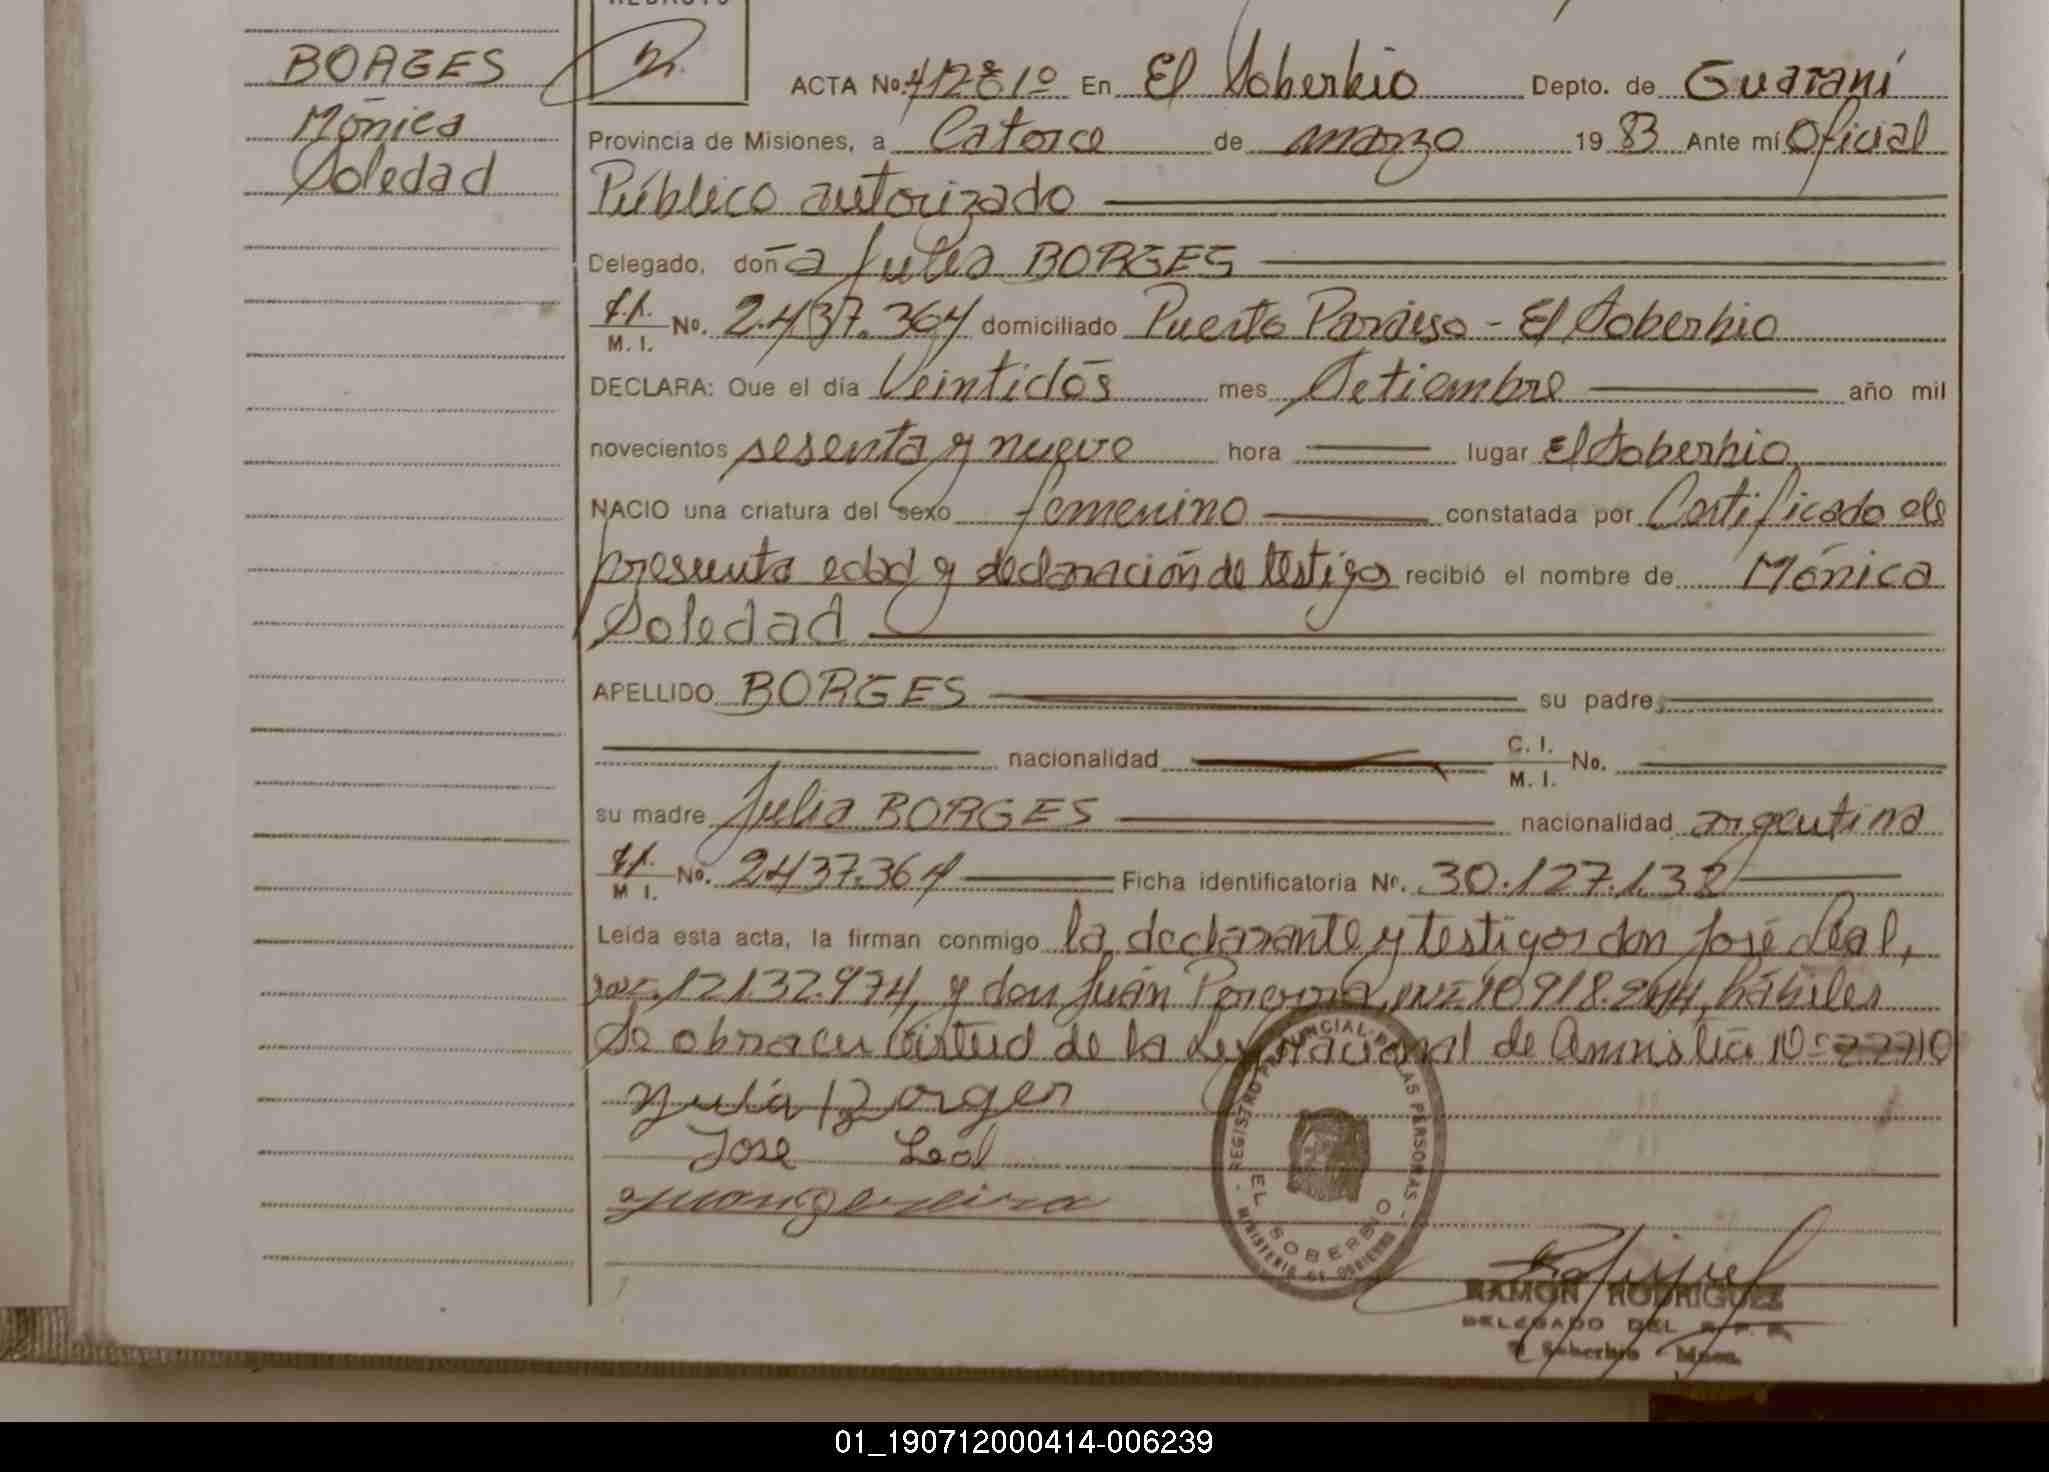 BORGES
Mónica
Soledad
ACTA No. 41281º En El Soberbio Depto. de Guaraní
Provincia de Misiones, a Catorce de marzo 19 83 Ante mí Oficial
Público autorizado
Delegado, doña Julia BORGES
M. I. No. 2.437.364 domiciliado Puerto Paraíso - El Soberbio
DECLARA: Que el día Veintidós mes Setiembre año mil
novecientos sesenta y nueve hora lugar El Soberbio
NACIO una criatura del sexo femenino constatada por Certificado de
presunta edad y declaración de testigo recibió el nombre de Mónica
Soledad
APELLIDO BORGES su padre
nacionalidad C. I. M. I. No.
su madre Julia BORGES nacionalidad argentina
M I. No. 2437.364 Ficha identificatoria Nº. 30.127.132
Leída esta acta, la firman conmigo la declarante y testigos don José Leal,
12.132.974, y don Juán Pereyra, hábiles
Se obra en virtud de la Ley nacional de Amnistía Nº 22710
Julia Borges
Jose Leal
Juan Pereira
REGISTRO PROVINCIAL DE LAS PERSONAS
EL SOBERBIO
MINISTERIO DE GOBIERNO
RAMON RODRIGUEZ
DELEGADO DEL R. P. P.
El Soberbio - Mnes.
01_190712000414-006239